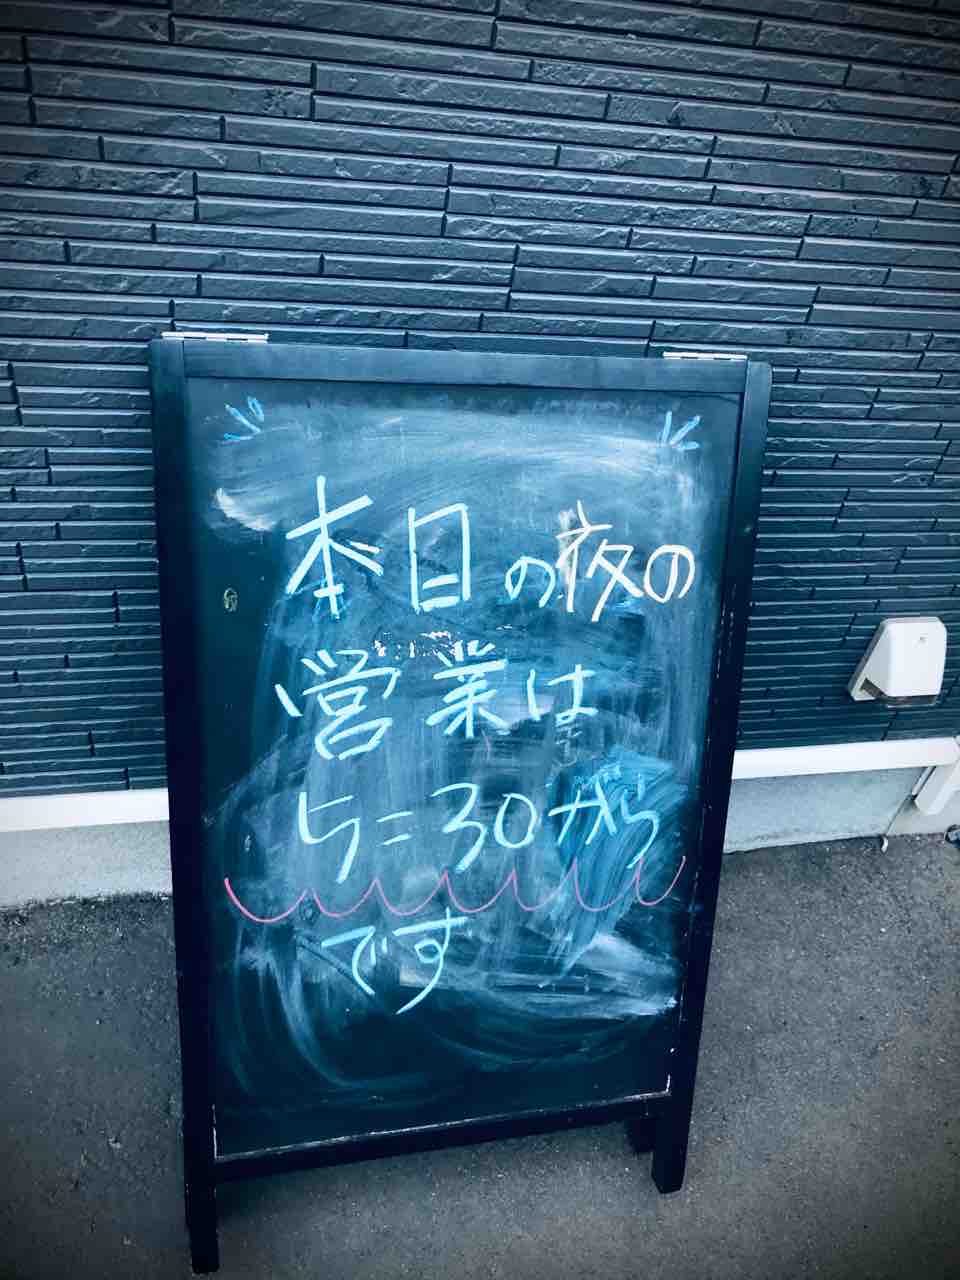 本日の夜の
営業は
5:30から
です